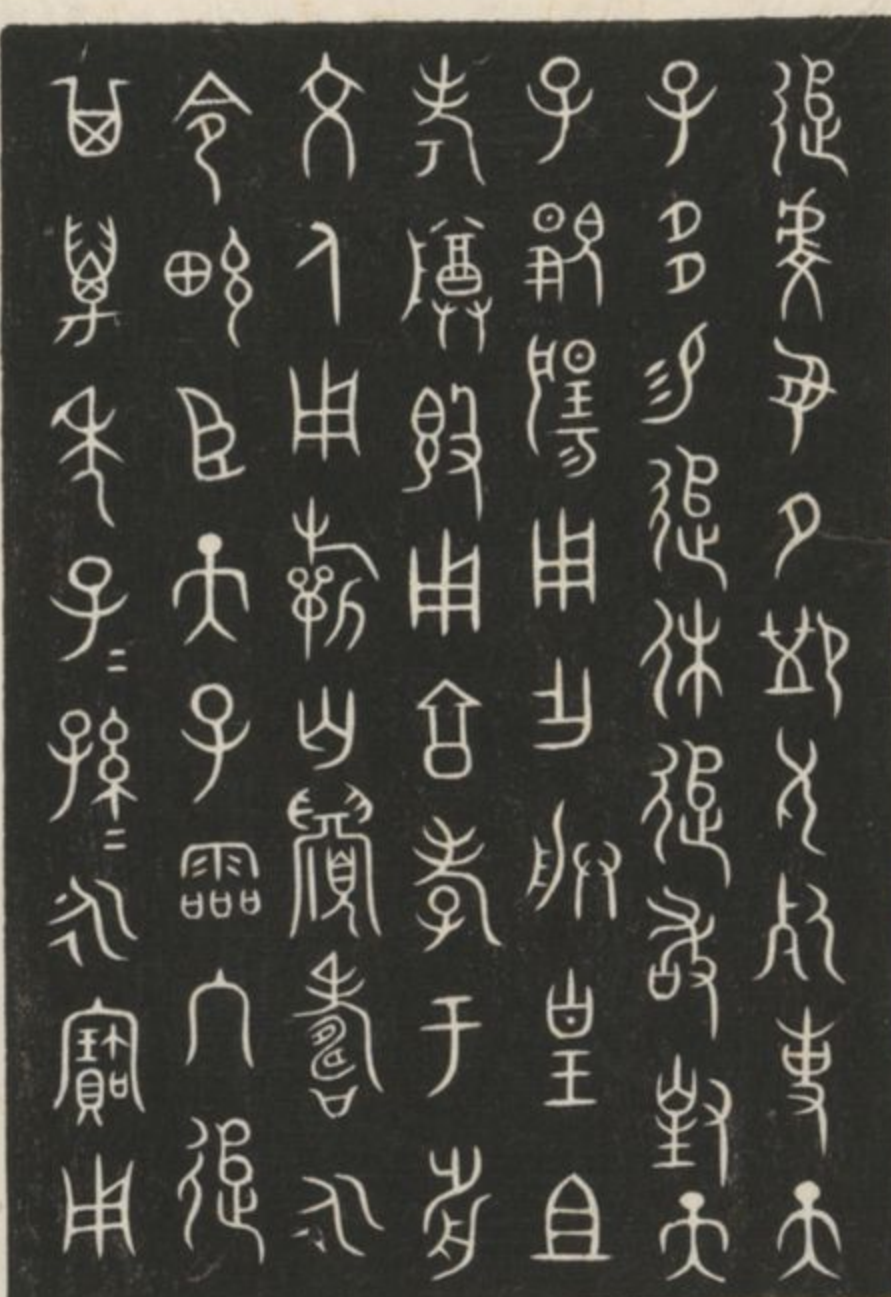 追虔夙夕卹厥死事天
子多易追休追敢對天
子覭揚用乍朕皇且
考尊簋用享孝于前
文人用祈匄眉壽永
令畯臣天子霝冬追
其萬年子=孫=永寶用